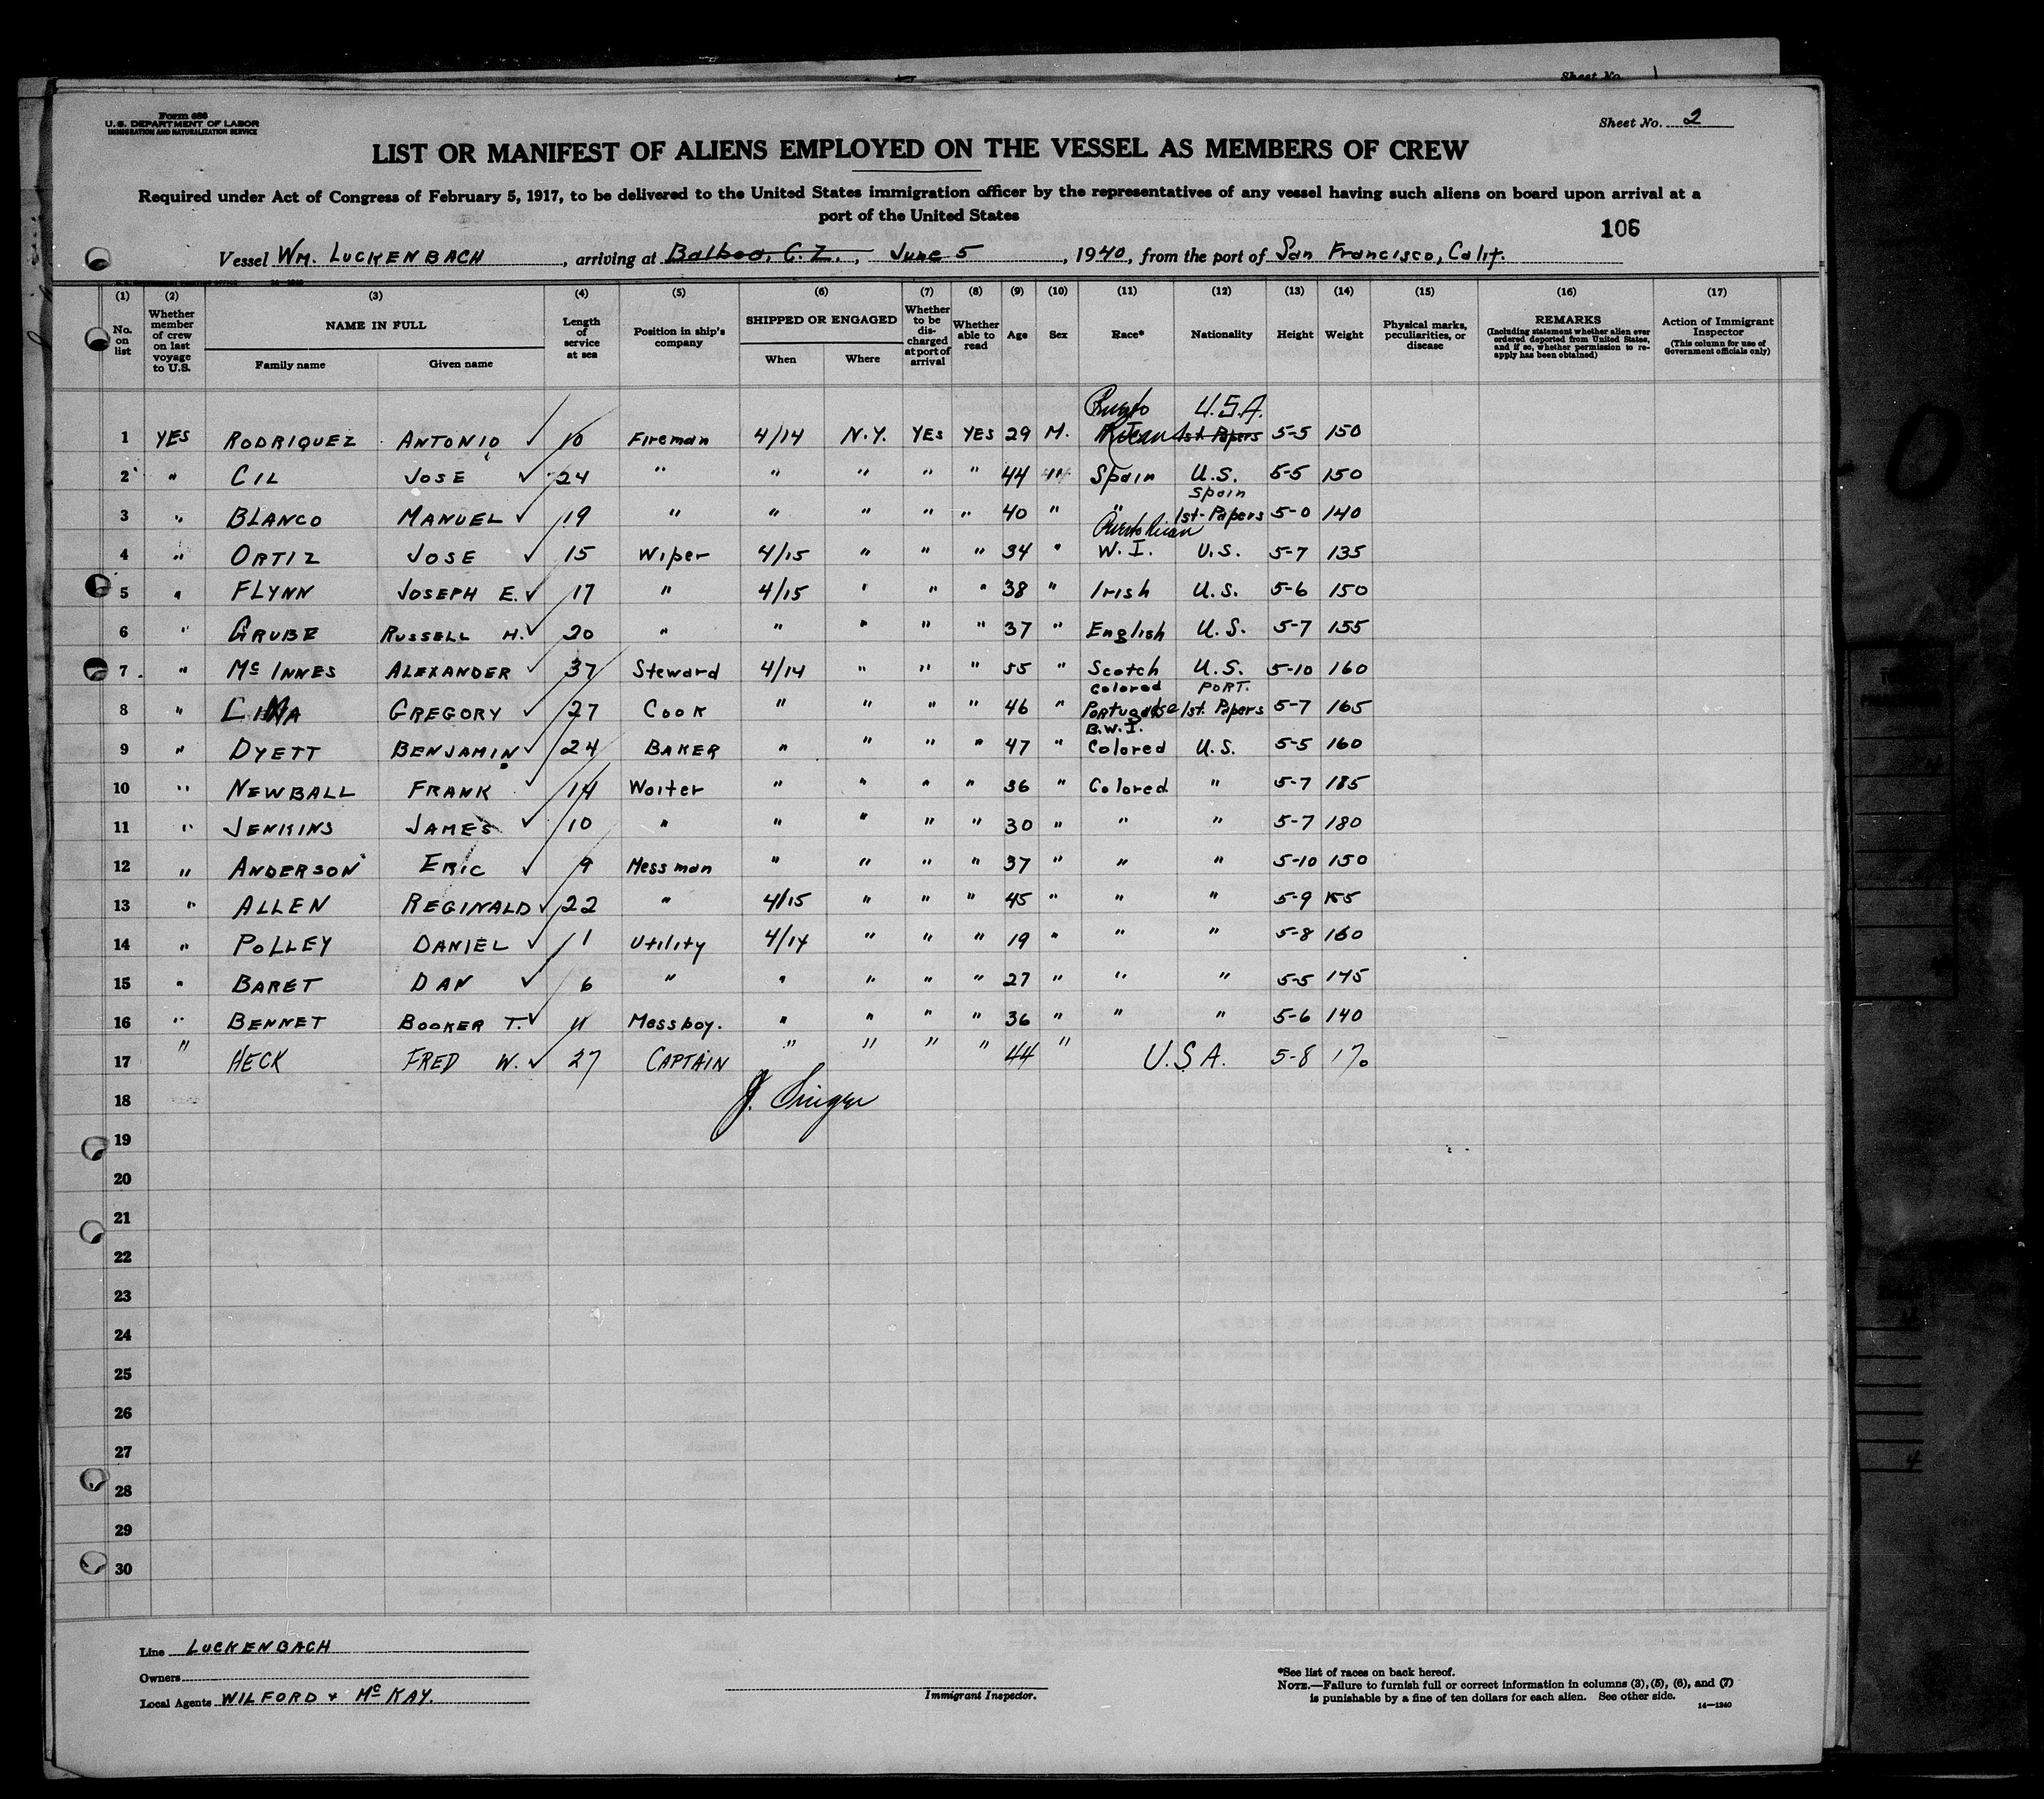 Sheet No. 1
Form 686
U. S. DEPARTMENT OF LABOR
IMMIGRATION AND NATURALIZATION SERVICE
Sheet No. 2
LIST OR MANIFEST OF ALIENS EMPLOYED ON THE VESSEL AS MEMBERS OF CREW
Required under Act of Congress of February 5, 1917, to be delivered to the United States immigration officer by the representatives of any vessel having such aliens on board upon arrival at a
port of the United States
106
Vessel WM. LUCKENBACH, arriving at Balboa, C. Z., June 5, 1940, from the port of San Francisco, Calif.
(1) (2) (3) (4) (5) (6) (7) (8) (9) (10) (11) (12) (13) (14) (15) (16) (17)
No. on list
Whether member of crew on last voyage to U.S.
NAME IN FULL
Family name Given name
Length of service at sea
Position in ship's company
SHIPPED OR ENGAGED
When Where
Whether to be discharged at port of arrival
Whether able to read
Age
Sex
Race*
Nationality
Height
Weight
Physical marks, peculiarities, or disease
REMARKS
(Including statement whether alien ever ordered deported from United States, and if so, whether permission to reapply has been obtained)
Action of Immigrant Inspector
(This column for use of Government officials only)
Puerto U.S.A.
1 YES RODRIQUEZ ANTONIO ✓ 10 Fireman 4/14 N.Y. YES YES 29 M. Rican 1st Papers 5-5 150
2 " CIL JOSE ✓ 24 " " " " " 44 " Spain U.S. 5-5 150
Spain
3 " BLANCO MANUEL ✓ 19 " " " " " 40 " " 1st-Papers 5-0 140
Puerto Rican
4 " ORTIZ JOSE ✓ 15 Wiper 4/15 " " " 34 " W. I. U.S. 5-7 135
5 " FLYNN JOSEPH E. ✓ 17 " 4/15 " " " 38 " Irish U.S. 5-6 150
6 " GRUBE RUSSELL H. ✓ 20 " " " " " 37 " English U.S. 5-7 155
7 " Mc INNES ALEXANDER ✓ 37 Steward 4/14 " " " 55 " Scotch U.S. 5-10 160
Colored PORT.
8 " LIMA GREGORY ✓ 27 COOK " " " " 46 " Portuguese 1st. Papers 5-7 165
B.W.I.
9 " DYETT BENJAMIN ✓ 24 BAKER " " " " 47 " Colored U.S. 5-5 160
10 " NEWBALL FRANK ✓ 14 Waiter " " " " 36 " Colored " 5-7 185
11 " JENKINS JAMES ✓ 10 " " " " " 30 " " " 5-7 180
12 " ANDERSON ERIC ✓ 9 Messman " " " " 37 " " " 5-10 150
13 " ALLEN REGINALD ✓ 22 " 4/15 " " " 45 " " " 5-9 155
14 " POLLEY DANIEL ✓ 1 Utility 4/14 " " " 19 " " " 5-8 160
15 " BARET DAN ✓ 6 " " " " " 27 " " " 5-5 145
16 " BENNET BOOKER T. ✓ 11 Messboy. " " " " 36 " " " 5-6 140
17 " HECK FRED W. ✓ 27 CAPTAIN " " " " 44 " U.S.A. 5-8 170
18 J. Singer
19
20
21
22
23
24
25
26
27
28
29
30
Line LUCKENBACH
Owners
Local Agents WILFORD + Mc KAY.
Immigrant Inspector.
*See list of races on back hereof.
NOTE.—Failure to furnish full or correct information in columns (3), (5), (6), and (7)
is punishable by a fine of ten dollars for each alien. See other side.
14—1240